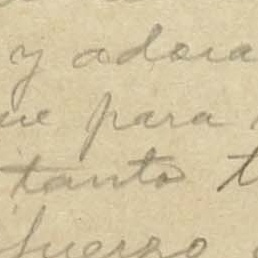 y adora
ue para
tanto t
fuerzo